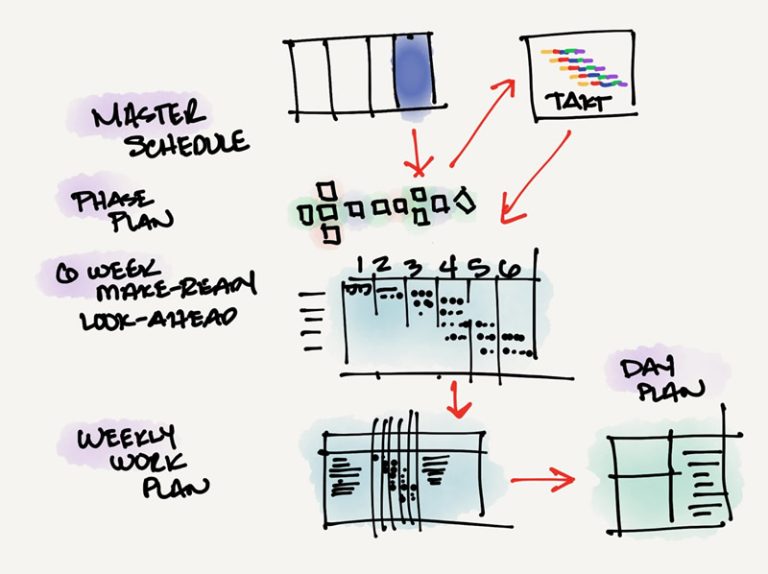 MASTER
SCHEDULE
TAKT
PHASE
PLAN
6 WEEK
MAKE-READY
LOOK-AHEAD
1 2 3 4 5 6
DAY
PLAN
WEEKLY
WORK
PLAN